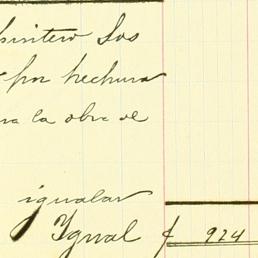 Los
por hechura
ra la obra de
igualar
Igual $ 924